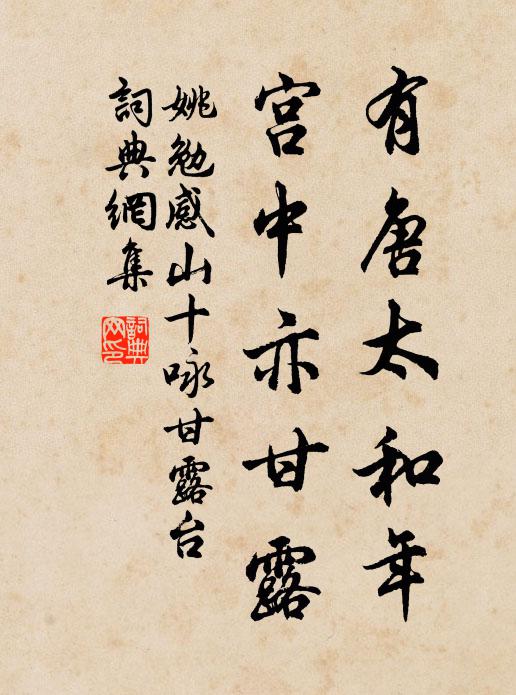 有唐太和年
宫中亦甘露
姚勉感山十咏甘露台
词典網集
詞典
网印